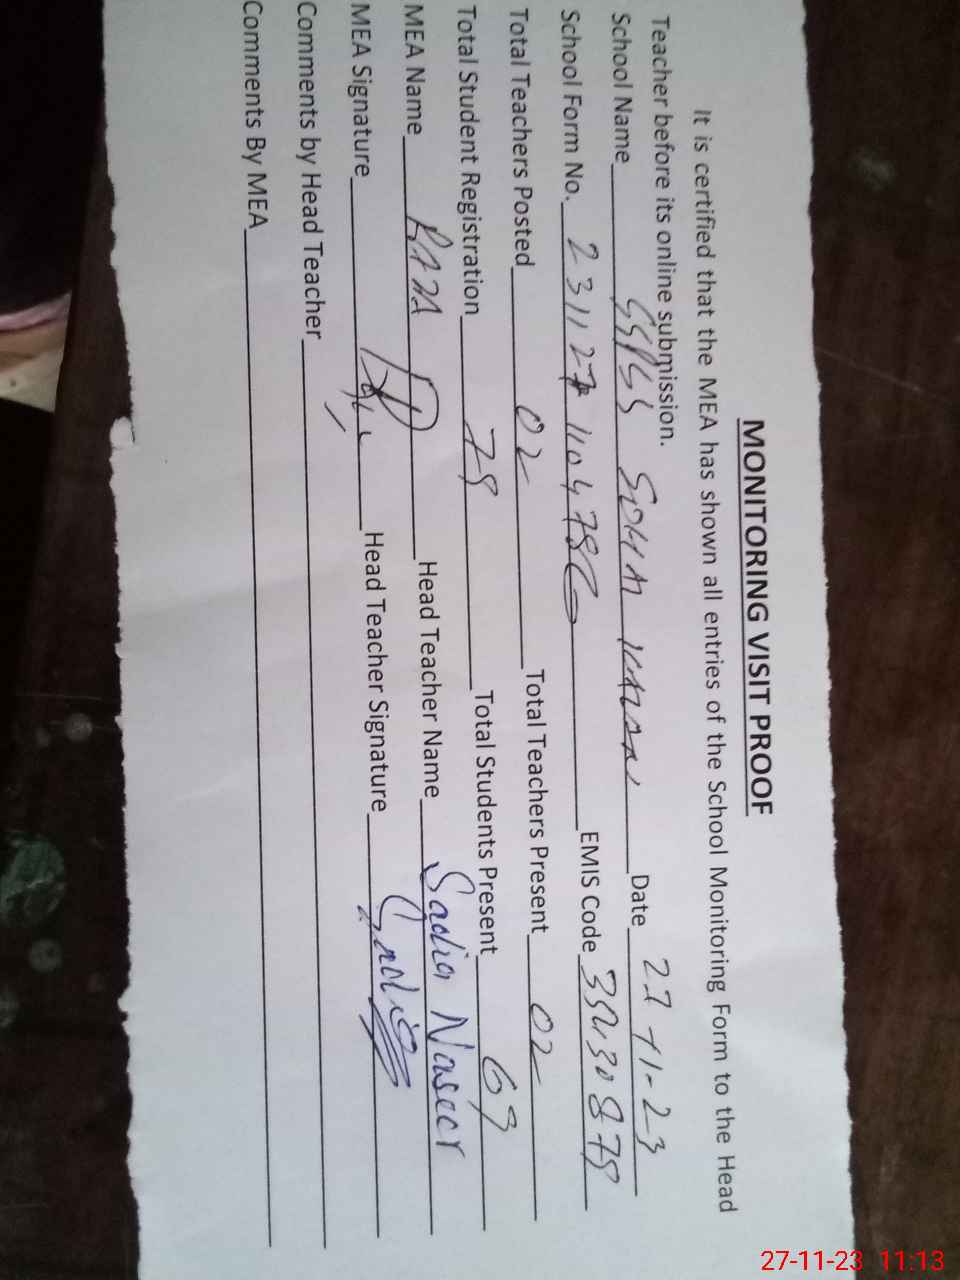 MONITORING VISIT PROOF
It is certified that the MEA has shown all entries of the School Monitoring Form to the Head
Teacher before its online submission.
School Name Date 27-11-23
School Form No. EMIS Code
Total Teachers Posted 02 Total Teachers Present 02
Total Student Registration 78 Total Students Present 69
MEA Name Head Teacher Name Sadia Naseer
MEA Signature Head Teacher Signature Sadia
Comments by Head Teacher
Comments By MEA
27-11-23 11:13